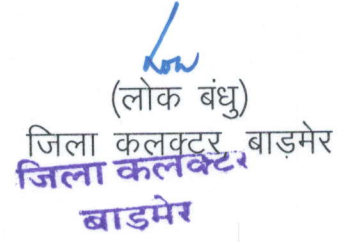 (लोक बंधु)
जिला कलक्टर बाड़मेर
जिला कलक्टर
बाडमेर